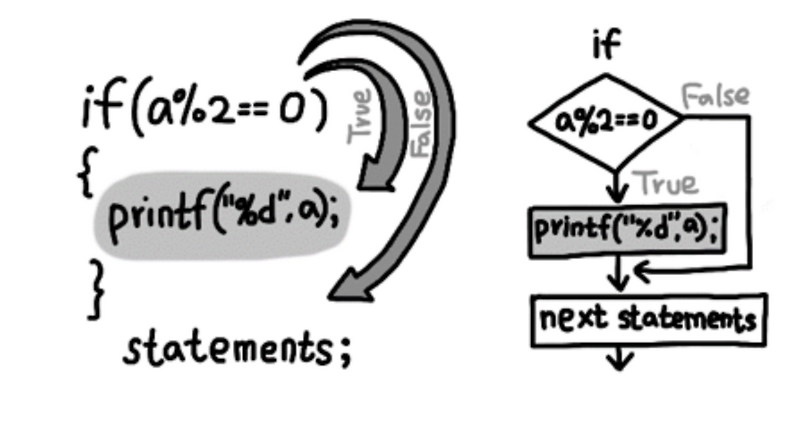 if(a%2==0)
True
False
{
printf("%d",a);
}
statements;
if
a%2==0
False
True
printf("%d",a);
next statements